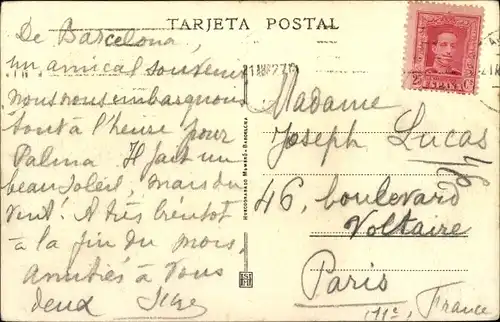 TARJETA POSTAL
De Barcelona,
un amical souvenir
nous nous embarquons
tout à l'heure pour
Palma Il fait un
beau soleil, mais du
vent! A très bientôt
à la fin du mois.
Amitiés à Vous
deux
HUECOGRABADO MUMBRÚ-BARCELONA
ESPAÑA
Madame
Joseph Lucas
46, boulevard
Voltaire
Paris
11e, France